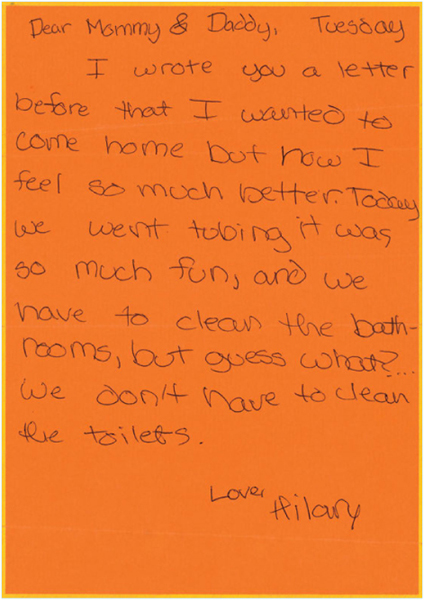 Dear Mommy & Daddy, Tuesday
I wrote you a letter
before that I wanted to
come home but now I
feel so much better. Today
we went tubing it was
so much fun, and we
have to clean the bath-
rooms, but guess what?...
we don't have to clean
the toilets.
Love,
Hilary